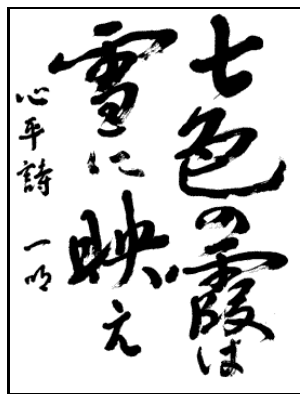 七色の霞は
雪に映え
心平詩 一鳴